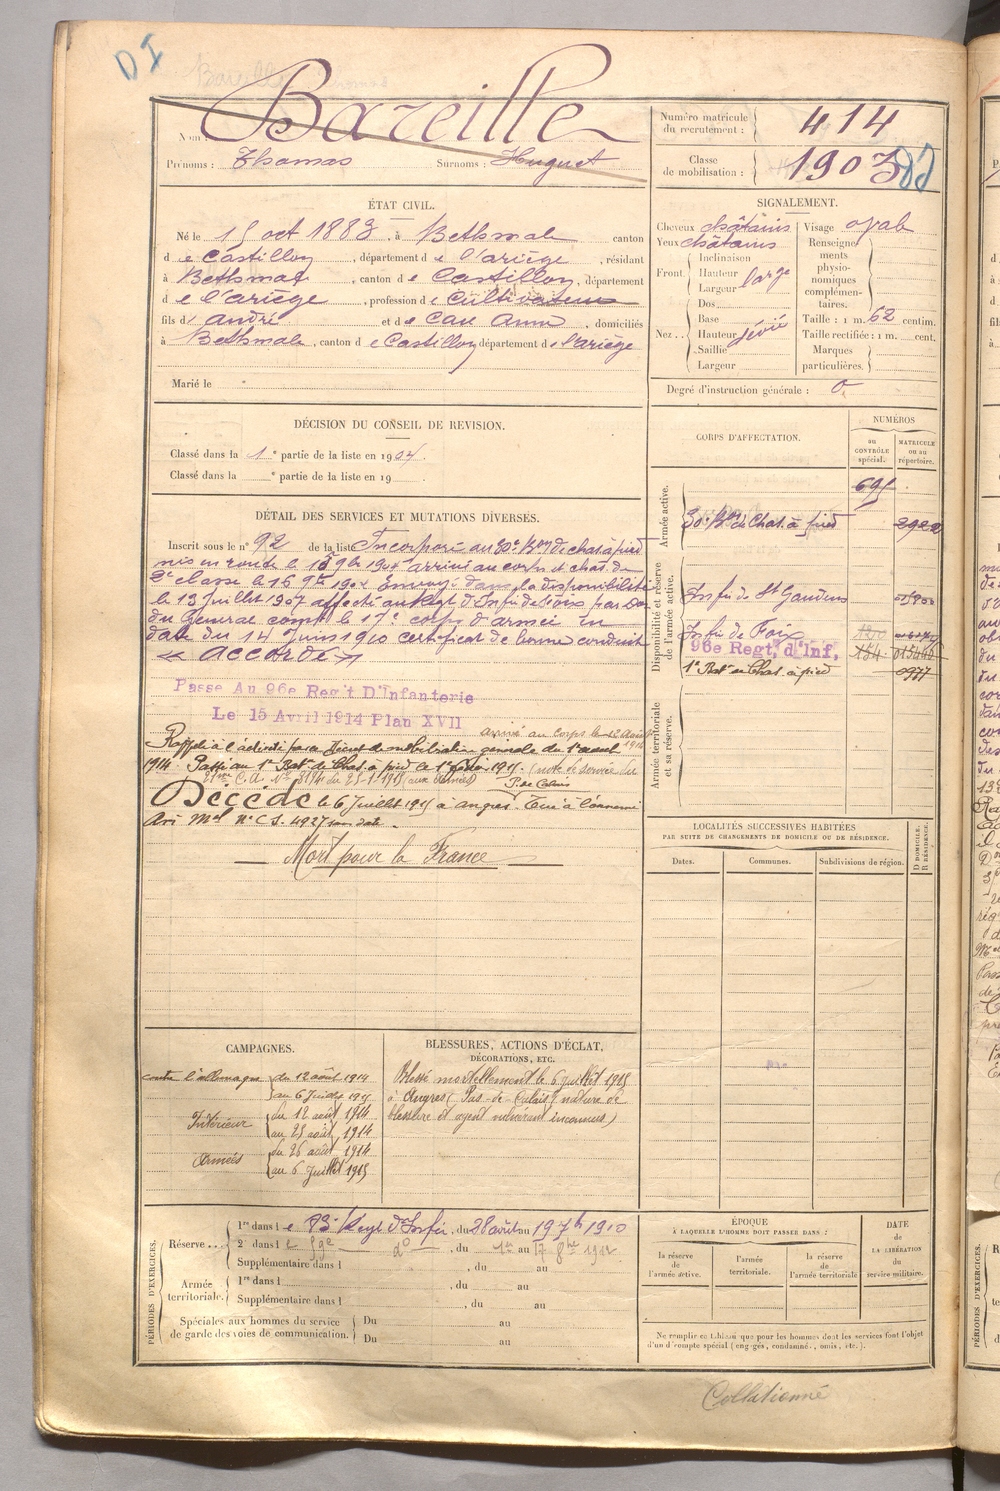 D I
Nom : Bareille
Prénoms : Thomas Surnoms : Huguet
Numéro matricule du recrutement : 414
Classe de mobilisation : 1903
ÉTAT CIVIL.
Né le 15 oct 1883, à Bethmale canton
de Castillon, département de l'ariège, résidant
à Bethmale, canton de Castillon, département
de l'ariège, profession de Cultivateur
fils d' andré et de Cau Anna, domiciliés
à Bethmale, canton de Castillon département de l'ariège
Marié le
SIGNALEMENT.
Cheveux châtains
Yeux châtains
Front. Inclinaison
Hauteur
Largeur large
Nez. Dos
Base
Hauteur
Saillie
Largeur
Visage oval
Renseignements physionomiques complémentaires.
Taille : 1 m. 62 centim.
Taille rectifiée : 1 m. cent.
Marques particulières.
Degré d'instruction générale : 0
DÉCISION DU CONSEIL DE REVISION.
Classé dans la 1e partie de la liste en 1904.
Classé dans la e partie de la liste en 19
DÉTAIL DES SERVICES ET MUTATIONS DIVERSES.
Inscrit sous le n° 92 de la liste Incorporé au 30e Bon de chas. à pied
mis en route le 15 9bre 1904 arrivé au corps et chas. de
2e classe le 16 9bre 1904 Envoyé dans la disponibilité
le 13 Juillet 1907 affecté au Regt d'Infie de Foix par
du Général commt le 17e corps d'armée en
date du 14 Juin 1910 certificat de bonne conduite
« accordé »
Passe Au 96e Reg't D'Infanterie
Le 15 Avril 1914 Plan XVII
arrivé au Corps le 12 Août 1914
Rappelé à l'activité par Décret de mobilisation générale du 1er août
1914. Passé au 1er Bat. de Chas. à pied le 1er février 1915. (note de service du
21ème C.A. N° 8194 du 25-1-1915 (aux Armées)
P. de Calais
Décédé le 6 Juillet 1915 à Angres. Tué à l'ennemi
Avis Mel N° C S. 4927 sans date.
Mort pour la France
CORPS D'AFFECTATION.
NUMÉROS
au CONTRÔLE spécial.
MATRICULE ou au répertoire.
Armée active.
695
30e Bon de Chas. à pied 2922
Disponibilité et réserve de l'armée active.
Infie de St Gaudens
Infie de Foix
96e Regt. d'Inf. 154 015446
1er Bat. de Chas. à pied 0977
Armée territoriale et sa réserve.
LOCALITÉS SUCCESSIVES HABITÉES
PAR SUITE DE CHANGEMENTS DE DOMICILE OU DE RÉSIDENCE.
Dates. Communes. Subdivisions de région. D DOMICILE. R RÉSIDENCE.
CAMPAGNES.
contre l'allemagne du 12 août 1914
au 6 Juillet 1915
Intérieur du 12 août 1914
au 25 août 1914
Armées du 26 août 1914
au 6 Juillet 1915
BLESSURES, ACTIONS D'ÉCLAT,
DÉCORATIONS, ETC.
Blessé mortellement le 6 juillet 1915
à Angres (Pas-de-Calais) (nature de
blessure et agent vulnérant inconnus)
PÉRIODES D'EXERCICES.
Réserve... 1re dans le 83e Regt d'Infie, du 28 août au 19 7b 1910
2e dans le 59e do, du 1er au 17 8bre 1912
Supplémentaire dans l , du au
Armée territoriale. 1re dans l , du au
Supplémentaire dans l , du au
Spéciales aux hommes du service de garde des voies de communication. Du au
Du au
ÉPOQUE
À LAQUELLE L'HOMME DOIT PASSER DANS :
la réserve de l'armée active.
l'armée territoriale.
la réserve de l'armée territoriale
DATE de LA LIBÉRATION du service militaire.
Ne remplir ce tableau que pour les hommes dont les services font l'objet
d'un décompte spécial (engagés, condamnés, omis, etc.).
Collationné